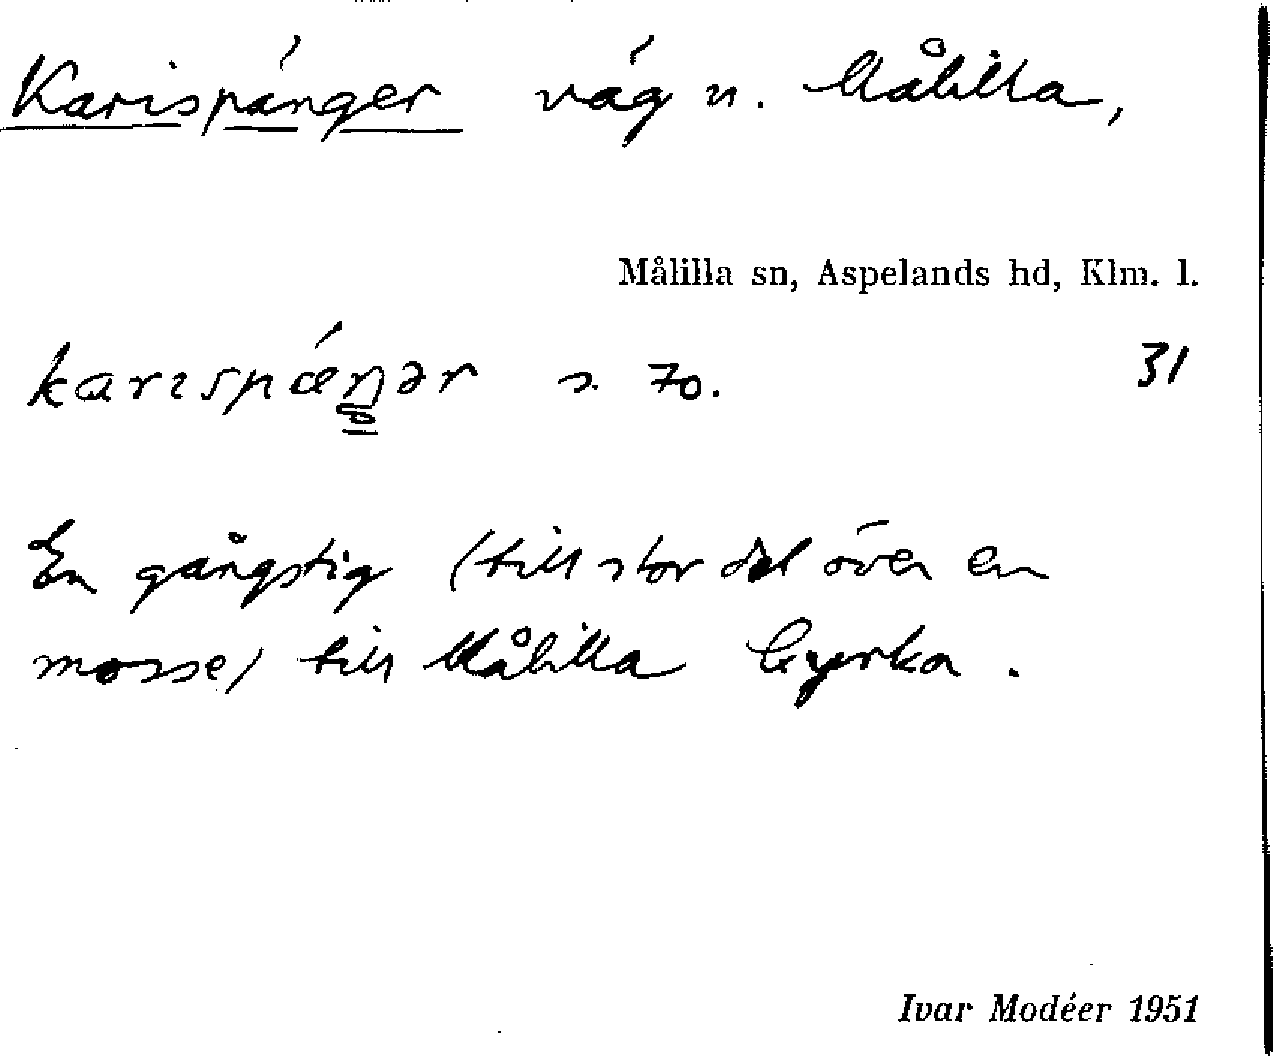 Karispänger väg n. Målilla,
Målilla sn, Aspelands hd, Klm. l.
karıspǽŋər s. 70. 31
En gångstig (till stor del över en
mosse) till Målilla kyrka.
Ivar Modéer 1951